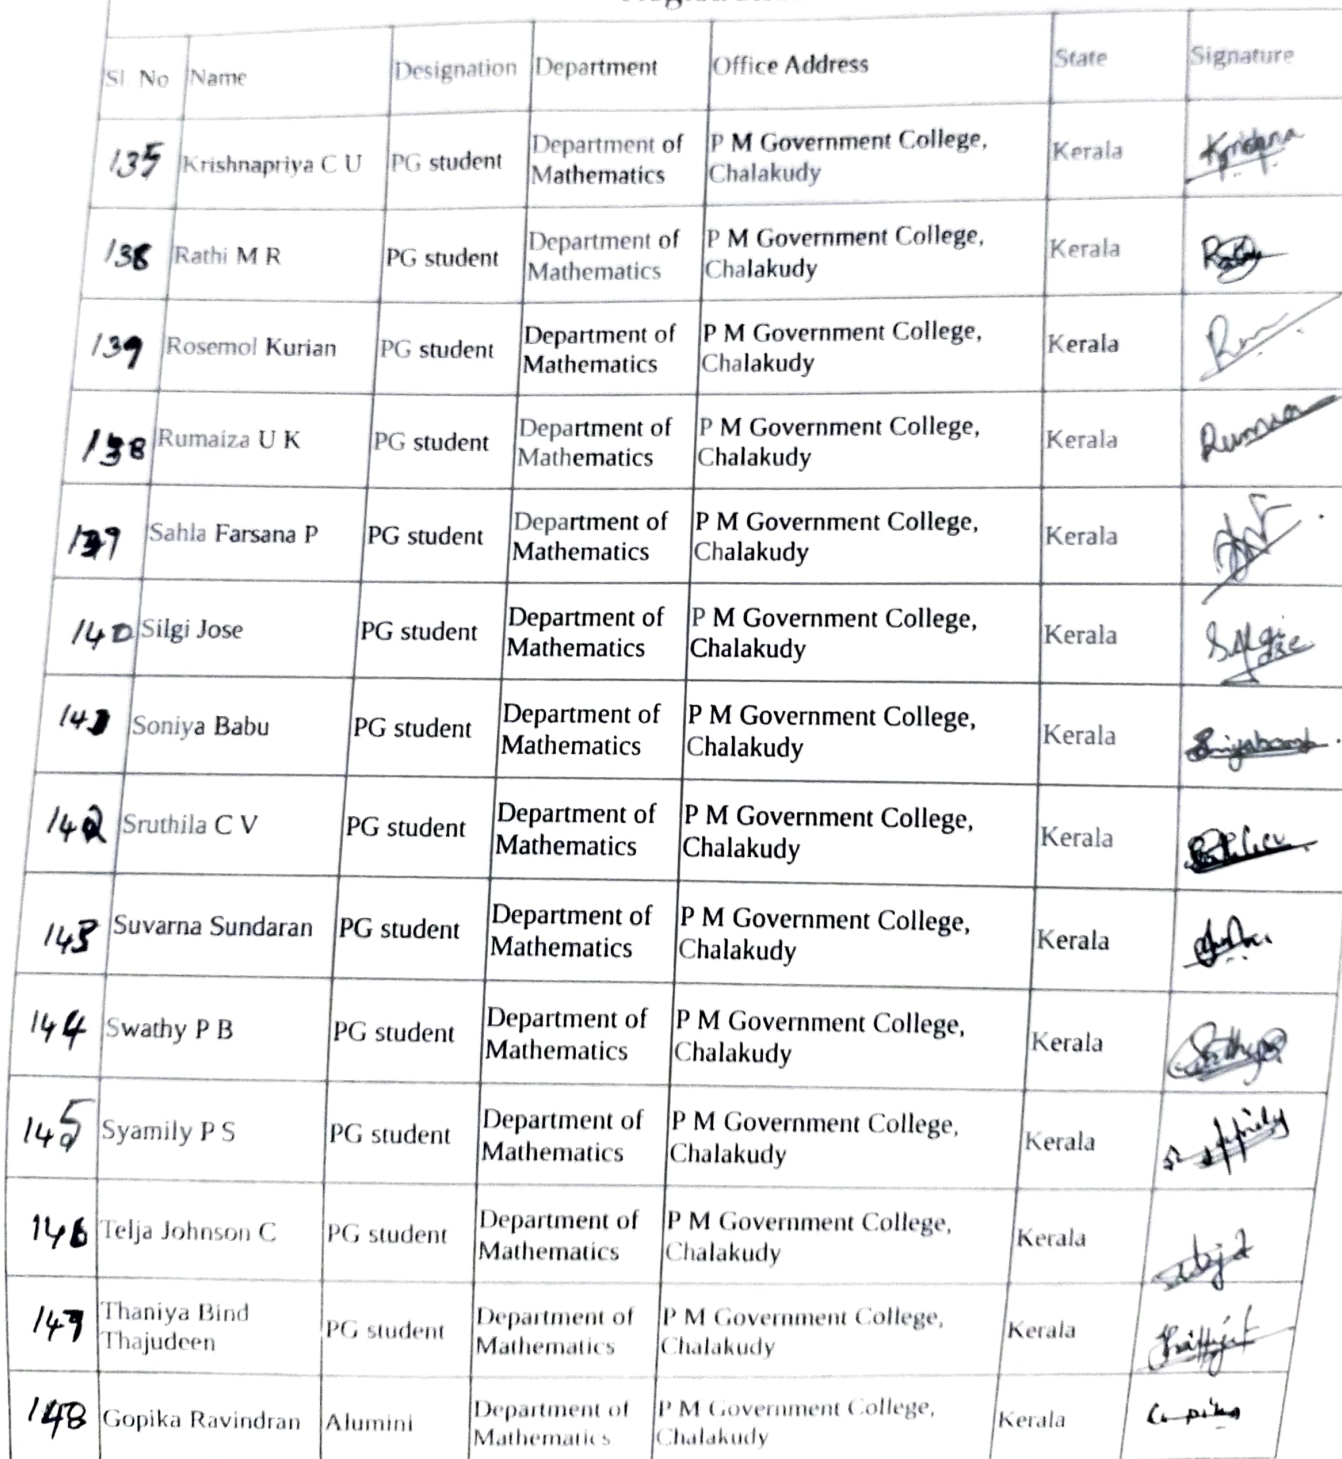 Sl. No Name Designation Department Office Address State Signature
135 Krishnapriya C U PG student Department of Mathematics P M Government College, Chalakudy Kerala Krishna
138 Rathi M R PG student Department of Mathematics P M Government College, Chalakudy Kerala
139 Rosemol Kurian PG student Department of Mathematics P M Government College, Chalakudy Kerala
138 Rumaiza U K PG student Department of Mathematics P M Government College, Chalakudy Kerala
139 Sahla Farsana P PG student Department of Mathematics P M Government College, Chalakudy Kerala
140 Silgi Jose PG student Department of Mathematics P M Government College, Chalakudy Kerala Silgi Jose
141 Soniya Babu PG student Department of Mathematics P M Government College, Chalakudy Kerala
142 Sruthila C V PG student Department of Mathematics P M Government College, Chalakudy Kerala
143 Suvarna Sundaran PG student Department of Mathematics P M Government College, Chalakudy Kerala
144 Swathy P B PG student Department of Mathematics P M Government College, Chalakudy Kerala
145 Syamily P S PG student Department of Mathematics P M Government College, Chalakudy Kerala
146 Telja Johnson C PG student Department of Mathematics P M Government College, Chalakudy Kerala
147 Thaniya Bind Thajudeen PG student Department of Mathematics P M Government College, Chalakudy Kerala
148 Gopika Ravindran Alumini Department of Mathematics P M Government College, Chalakudy Kerala Gopika